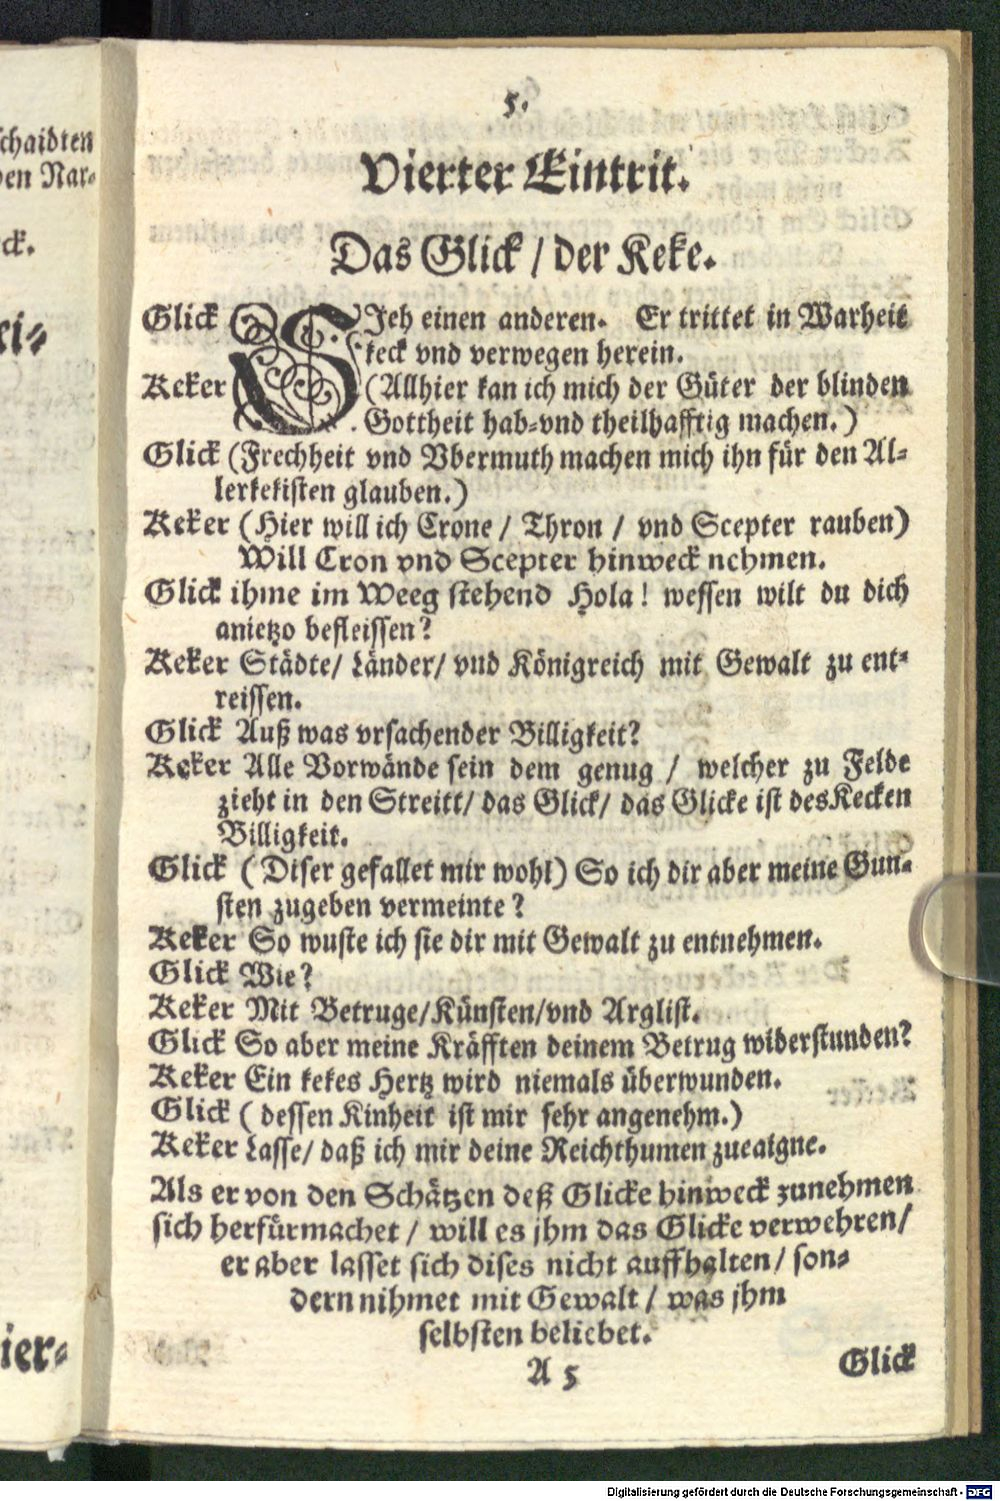 schaidten
ven Nar-
ck.
ri-
ier-
5.
Vierter Eintrit.
Das Glick / der Keke.
Glick SJeh einen anderen. Er trittet in Warheit
keck vnd verwegen herein.
Keker (Allhier kan ich mich der Güter der blinden
Gottheit hab-vnd theilhafftig machen.)
Glick (Frechheit vnd Vbermuth machen mich ihn für den Al-
lerkekisten glauben.)
Keker (Hier will ich Crone / Thron / vnd Scepter rauben)
Will Cron vnd Scepter hinweck nehmen.
Glick ihme im Weeg stehend Hola! wessen wilt du dich
anietzo befleissen?
Keker Städte/ Länder/ vnd Königreich mit Gewalt zu ent-
reissen.
Glick Auß was vrsachender Billigkeit?
Keker Alle Vorwände sein dem genug / welcher zu Felde
zieht in den Streitt/ das Glick/ das Glicke ist des Kecken
Billigkeit.
Glick (Diser gefallet mir wohl) So ich dir aber meine Gun-
sten zugeben vermeinte?
Keker So wuste ich sie dir mit Gewalt zu entnehmen.
Glick Wie?
Keker Mit Betruge/Künsten/vnd Arglist.
Glick So aber meine Kräfften deinem Betrug widerstunden?
Keker Ein kekes Hertz wird niemals überwunden.
Glick (dessen Kinheit ist mir sehr angenehm.)
Keker Lasse/ daß ich mir deine Reichthumen zueaigne.
Als er von den Schätzen deß Glicke hinweck zunehmen
sich herfürmachet / will es jhm das Glicke verwehren/
er aber lasset sich dises nicht auffhalten/ son-
dern nihmet mit Gewalt / was jhm
selbsten beliebet.
A 5
Glick
Digitalisierung gefördert durch die Deutsche Forschungsgemeinschaft - DFG